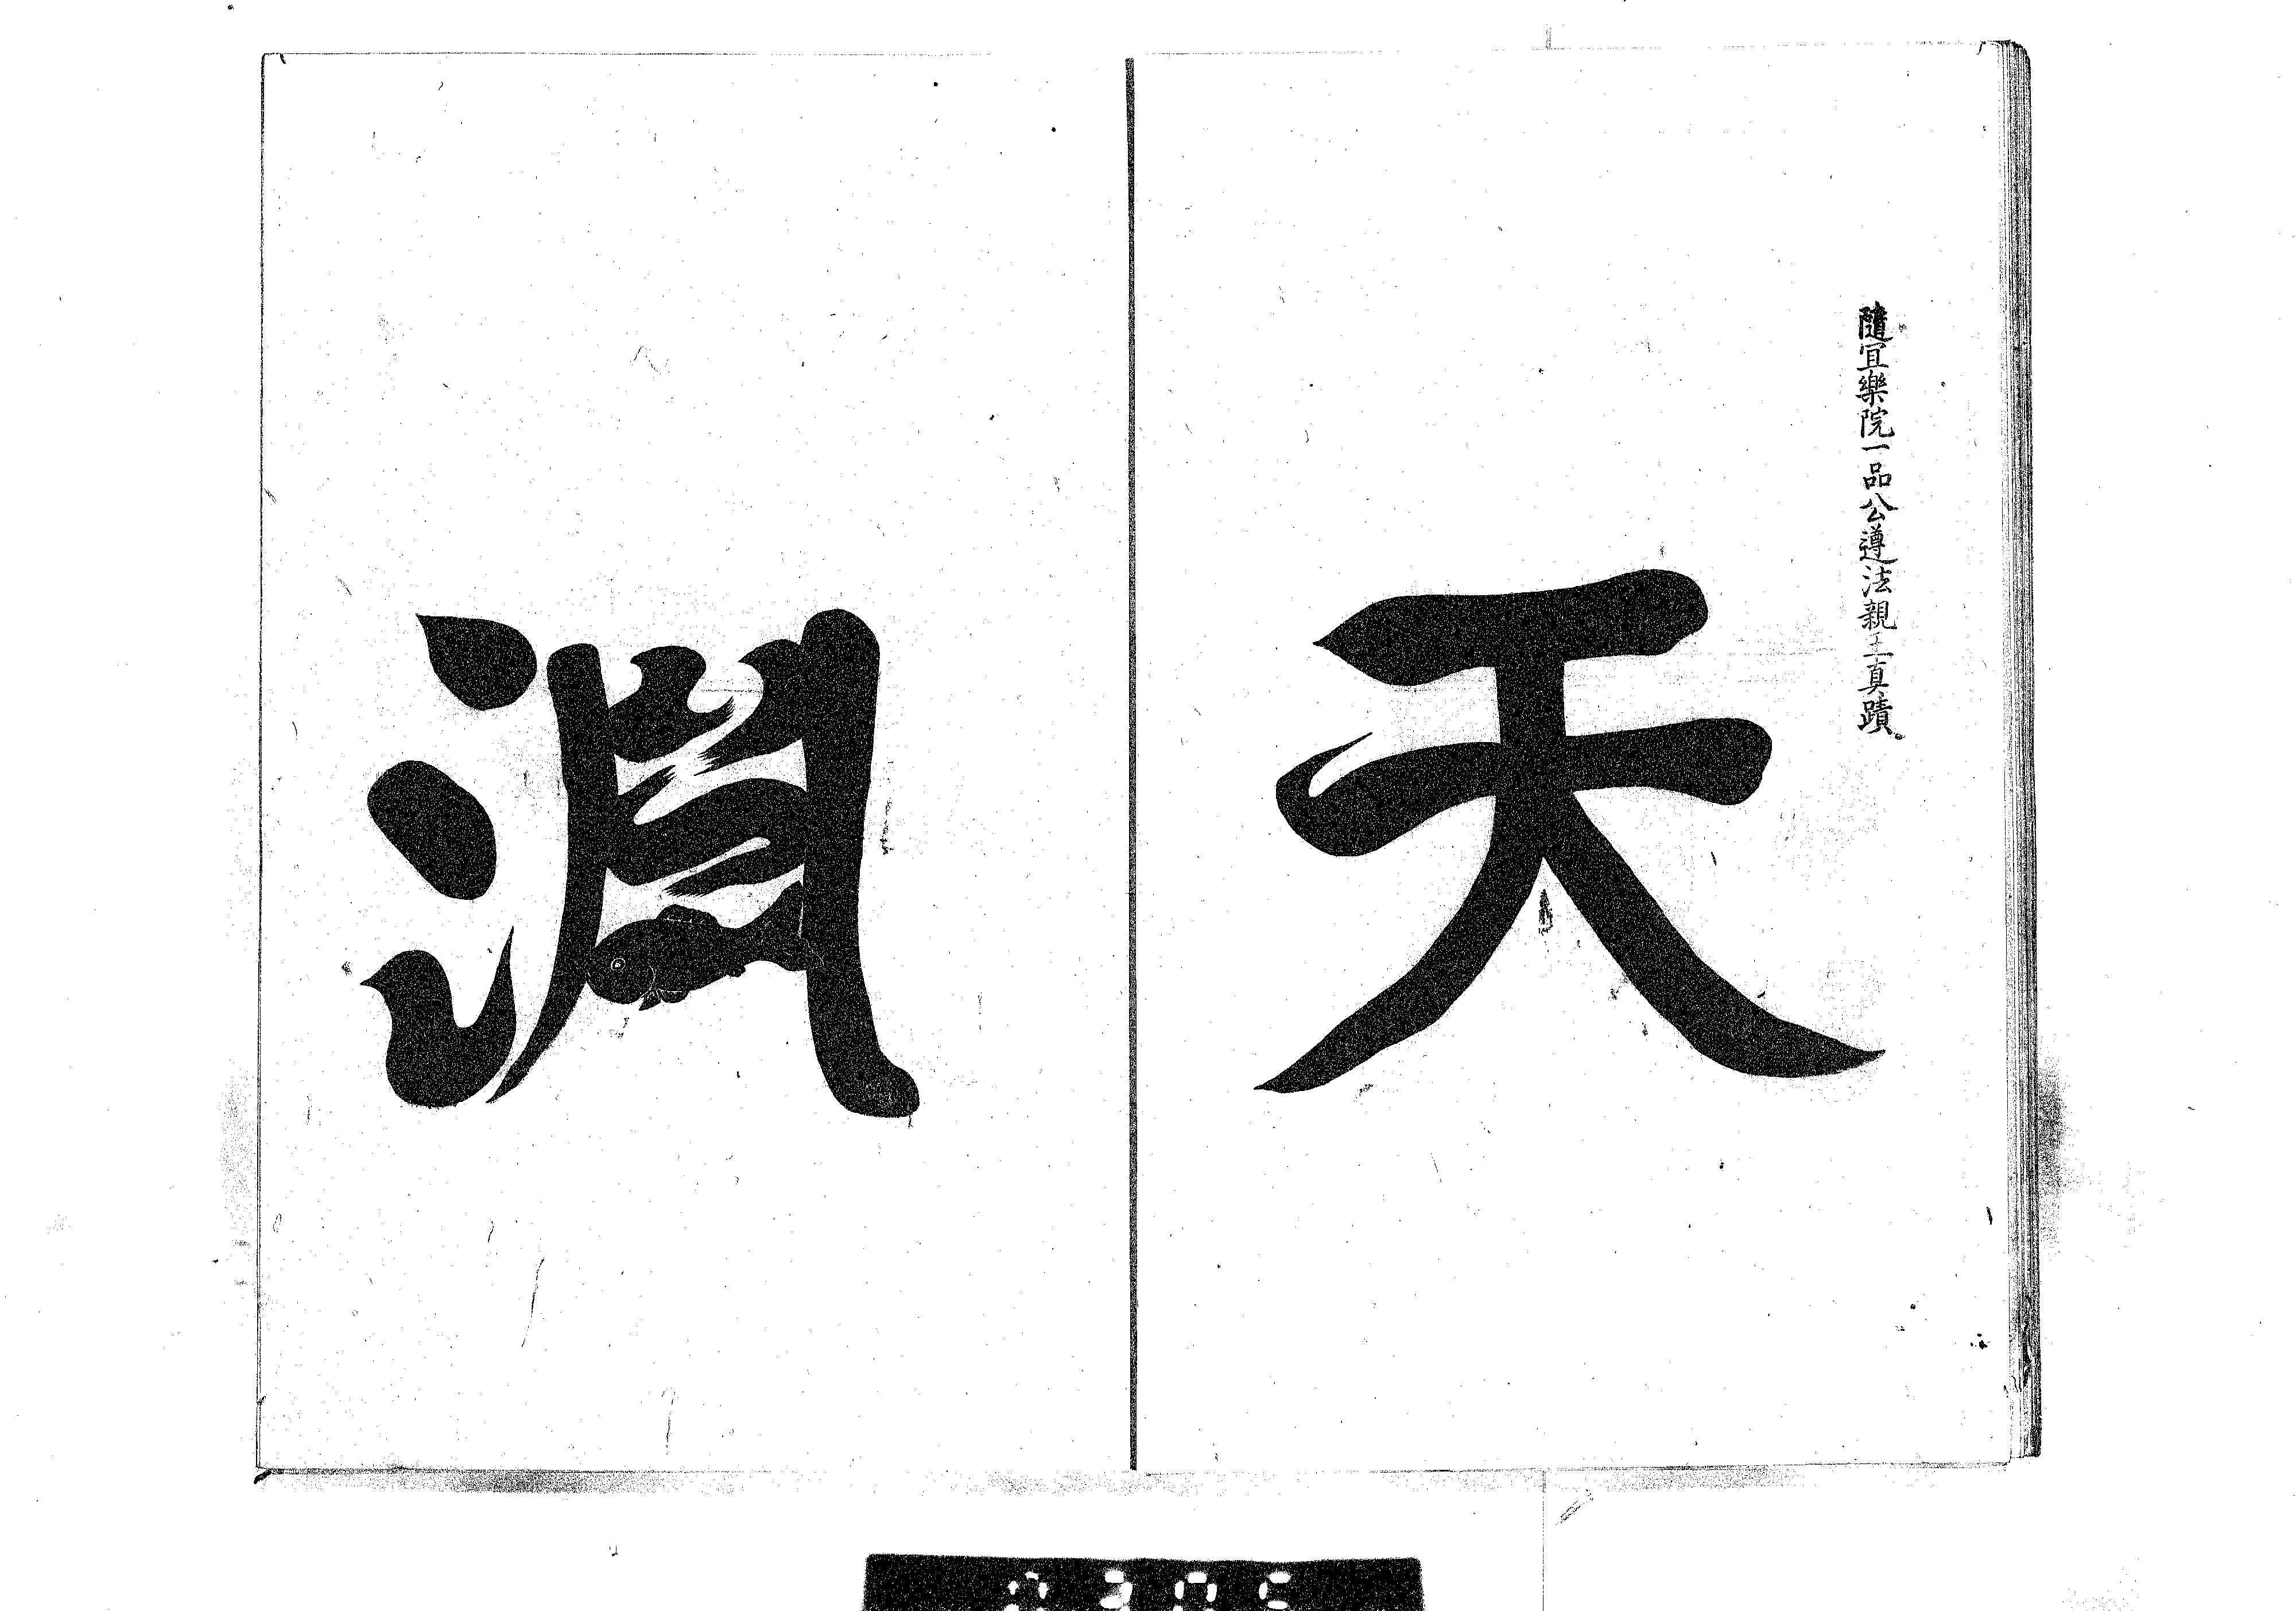 隨宜樂院一品公遵法親王真蹟
天
淵